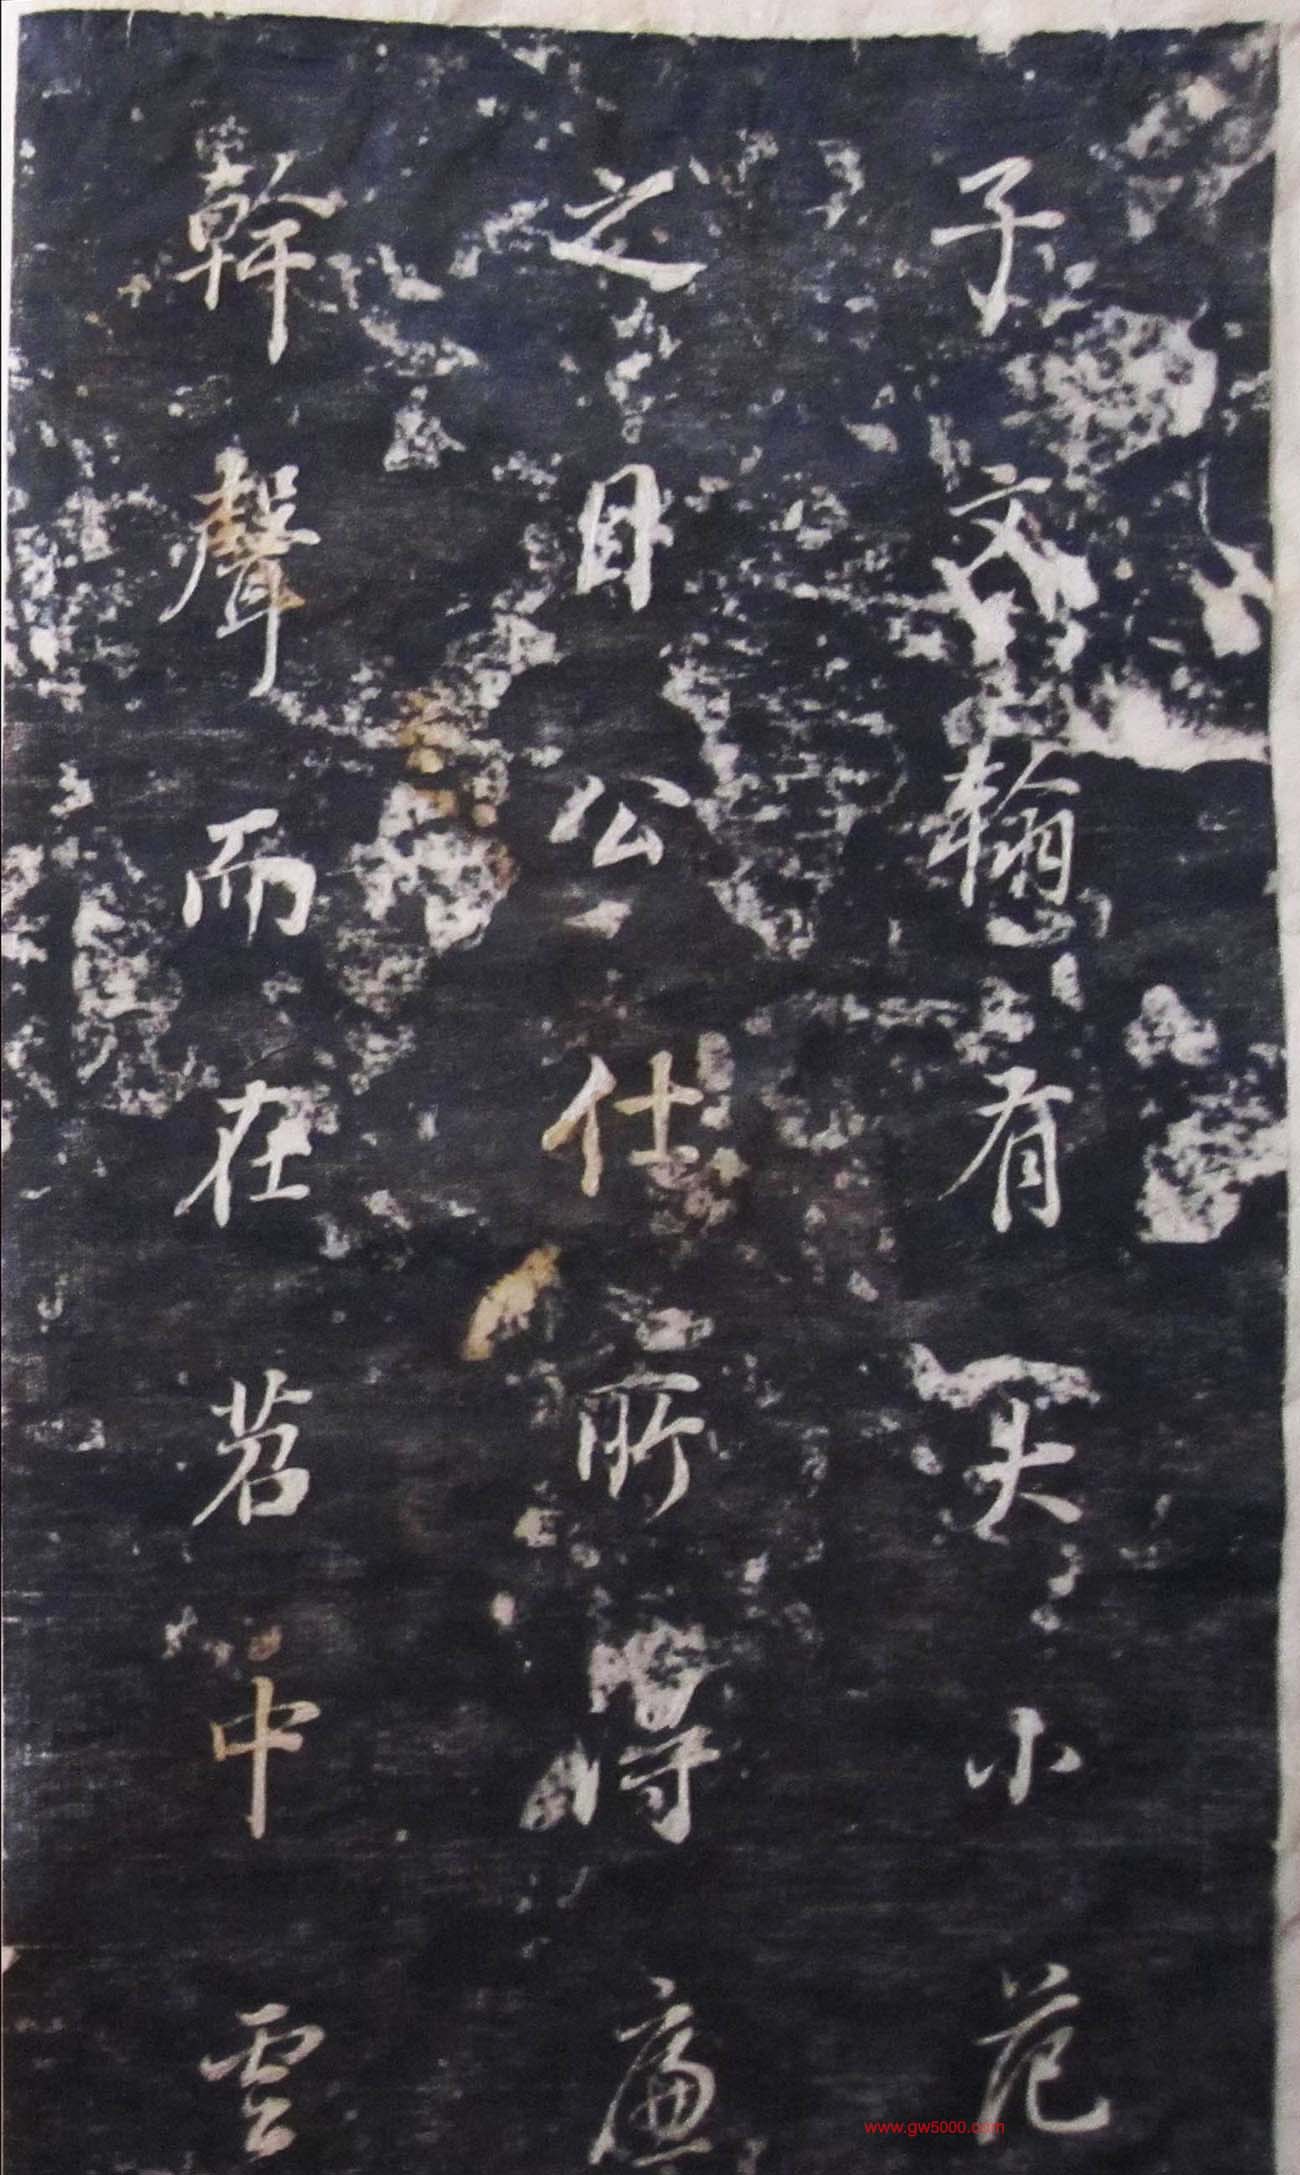 子文翰有大小范
之目公仕所得廉
幹聲而在苕中雲
www.gw5000.com